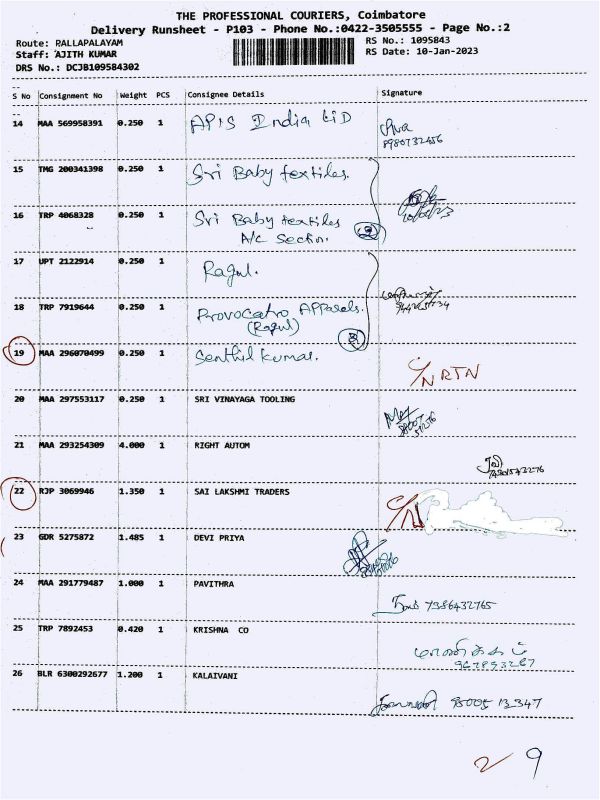 THE PROFESSIONAL COURIERS, Coimbatore
Delivery Runsheet - P103 - Phone No.:0422-3505555 - Page No.:2
Route: RALLAPALAYAM
RS No.: 1095843
Staff: AJITH KUMAR
RS Date: 10-Jan-2023
DRS No.: DCJB109584302
S No Consignment No Weight PCS Consignee Details Signature
14 MAA 569958391 0.250 1 APIS India LTD
8980732456
15 TMG 200341398 0.250 1 Sri Baby textiles.
16 TRP 4068328 0.250 1 Sri Baby textiles
A/c Section.
17 UPT 2122914 0.250 1 Ragul.
18 TRP 7919644 0.250 1 Provocatro Apparals.
(Ragul)
19 MAA 296070499 0.250 1 Senthil kumar. C/N RTN
20 MAA 297553117 0.250 1 SRI VINAYAGA TOOLING
21 MAA 293254309 4.000 1 RIGHT AUTOM
22 RJP 3069946 1.350 1 SAI LAKSHMI TRADERS C/N
23 GDR 5275872 1.485 1 DEVI PRIYA
24 MAA 291779487 1.000 1 PAVITHRA 7386432765
25 TRP 7892453 0.420 1 KRISHNA CO
26 BLR 6300292677 1.200 1 KALAIVANI
2/ 9